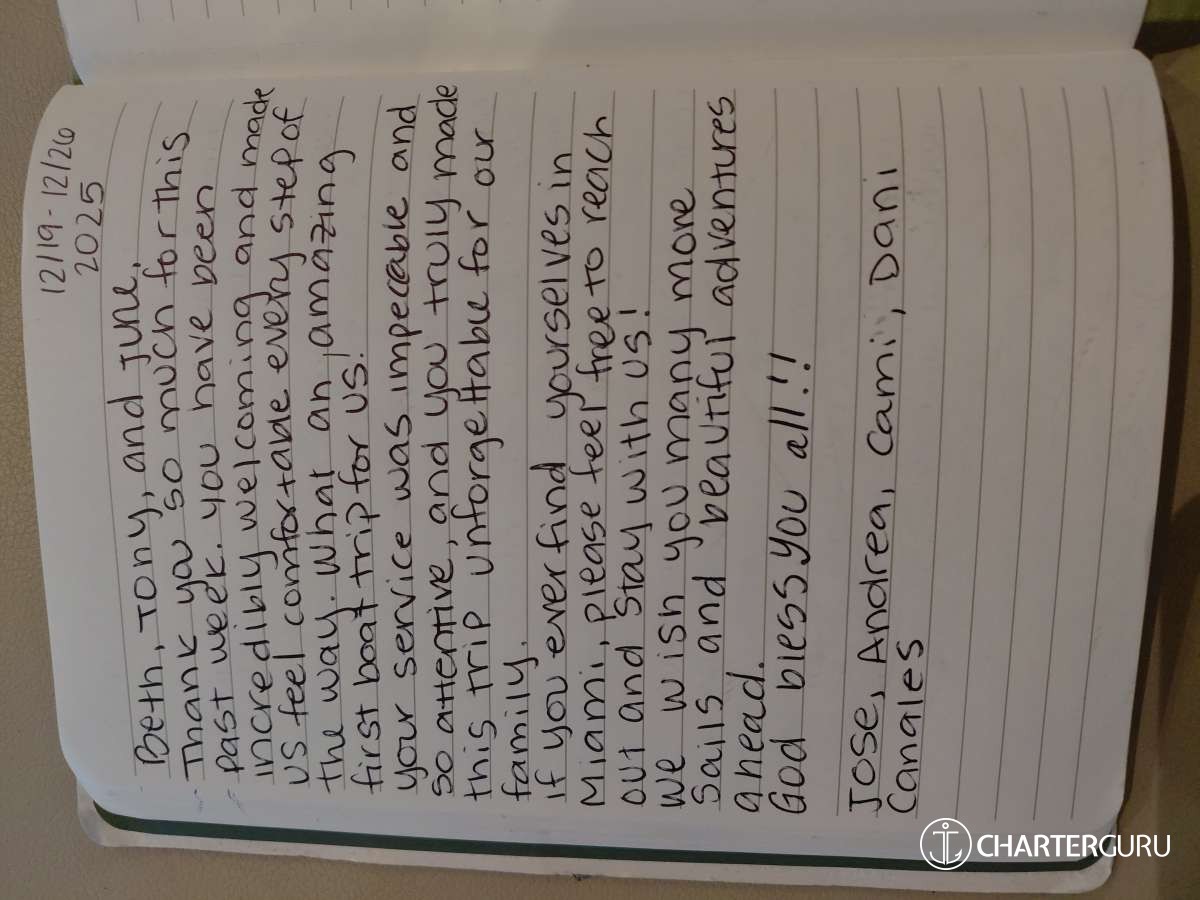 12/19 - 12/26
2025
Beth, Tony, and June,
Thank you so much for this
past week. you have been
incredibly welcoming and made
us feel comfortable every step of
the way. What an amazing
first boat trip for us!
your service was impeccable and
so attentive, and you truly made
this trip unforgettable for our
family.
If you ever find yourselves in
Miami, please feel free to reach
out and stay with us!
We wish you many more
Sails and beautiful adventures
ahead.
God bless you all!!
Jose, Andrea, Cami, Dani
Canales
CHARTERGURU